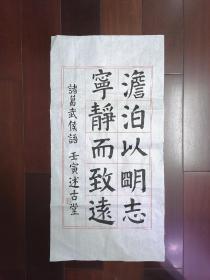 澹泊以眀志
寧靜而致遠
諸葛武侯語 壬寅述古堂